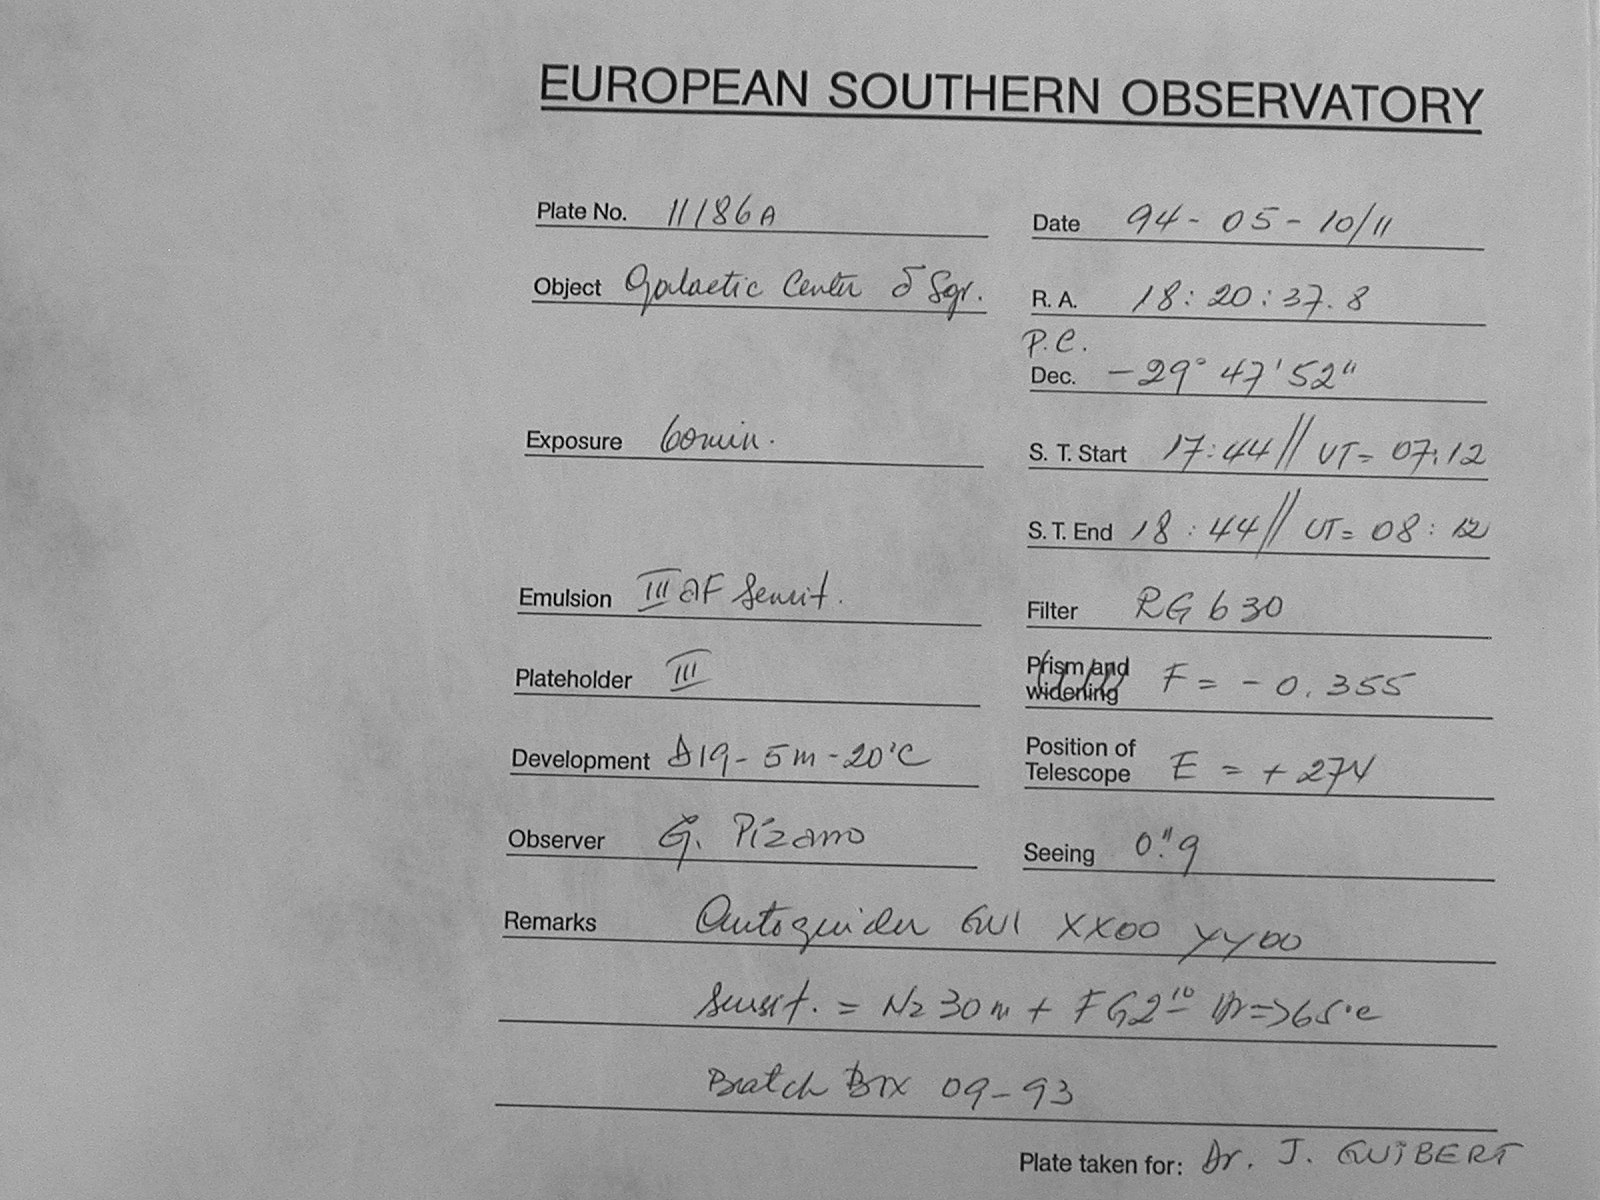 EUROPEAN SOUTHERN OBSERVATORY
Plate No. 11186A Date 94-05-10/11
Object Galactic Center δ Sgr. R. A. 18:20:37.8
P.C.
Dec. -29° 47' 52"
Exposure 60min. S. T. Start 17:44 // UT= 07:12
S. T. End 18:44 // UT= 08:12
Emulsion III aF Sensit. Filter RG 630
Plateholder III Prism and widening F = -0.355
Development D19-5m-20°C Position of Telescope E = +274
Observer G. Pizarro Seeing 0".9
Remarks Autoguider GW1 XX00 YY00
Sensit. = N2 30m + FG2 10 Hr=>65°C
Batch Box 09-93
Plate taken for: Dr. J. GUIBERT